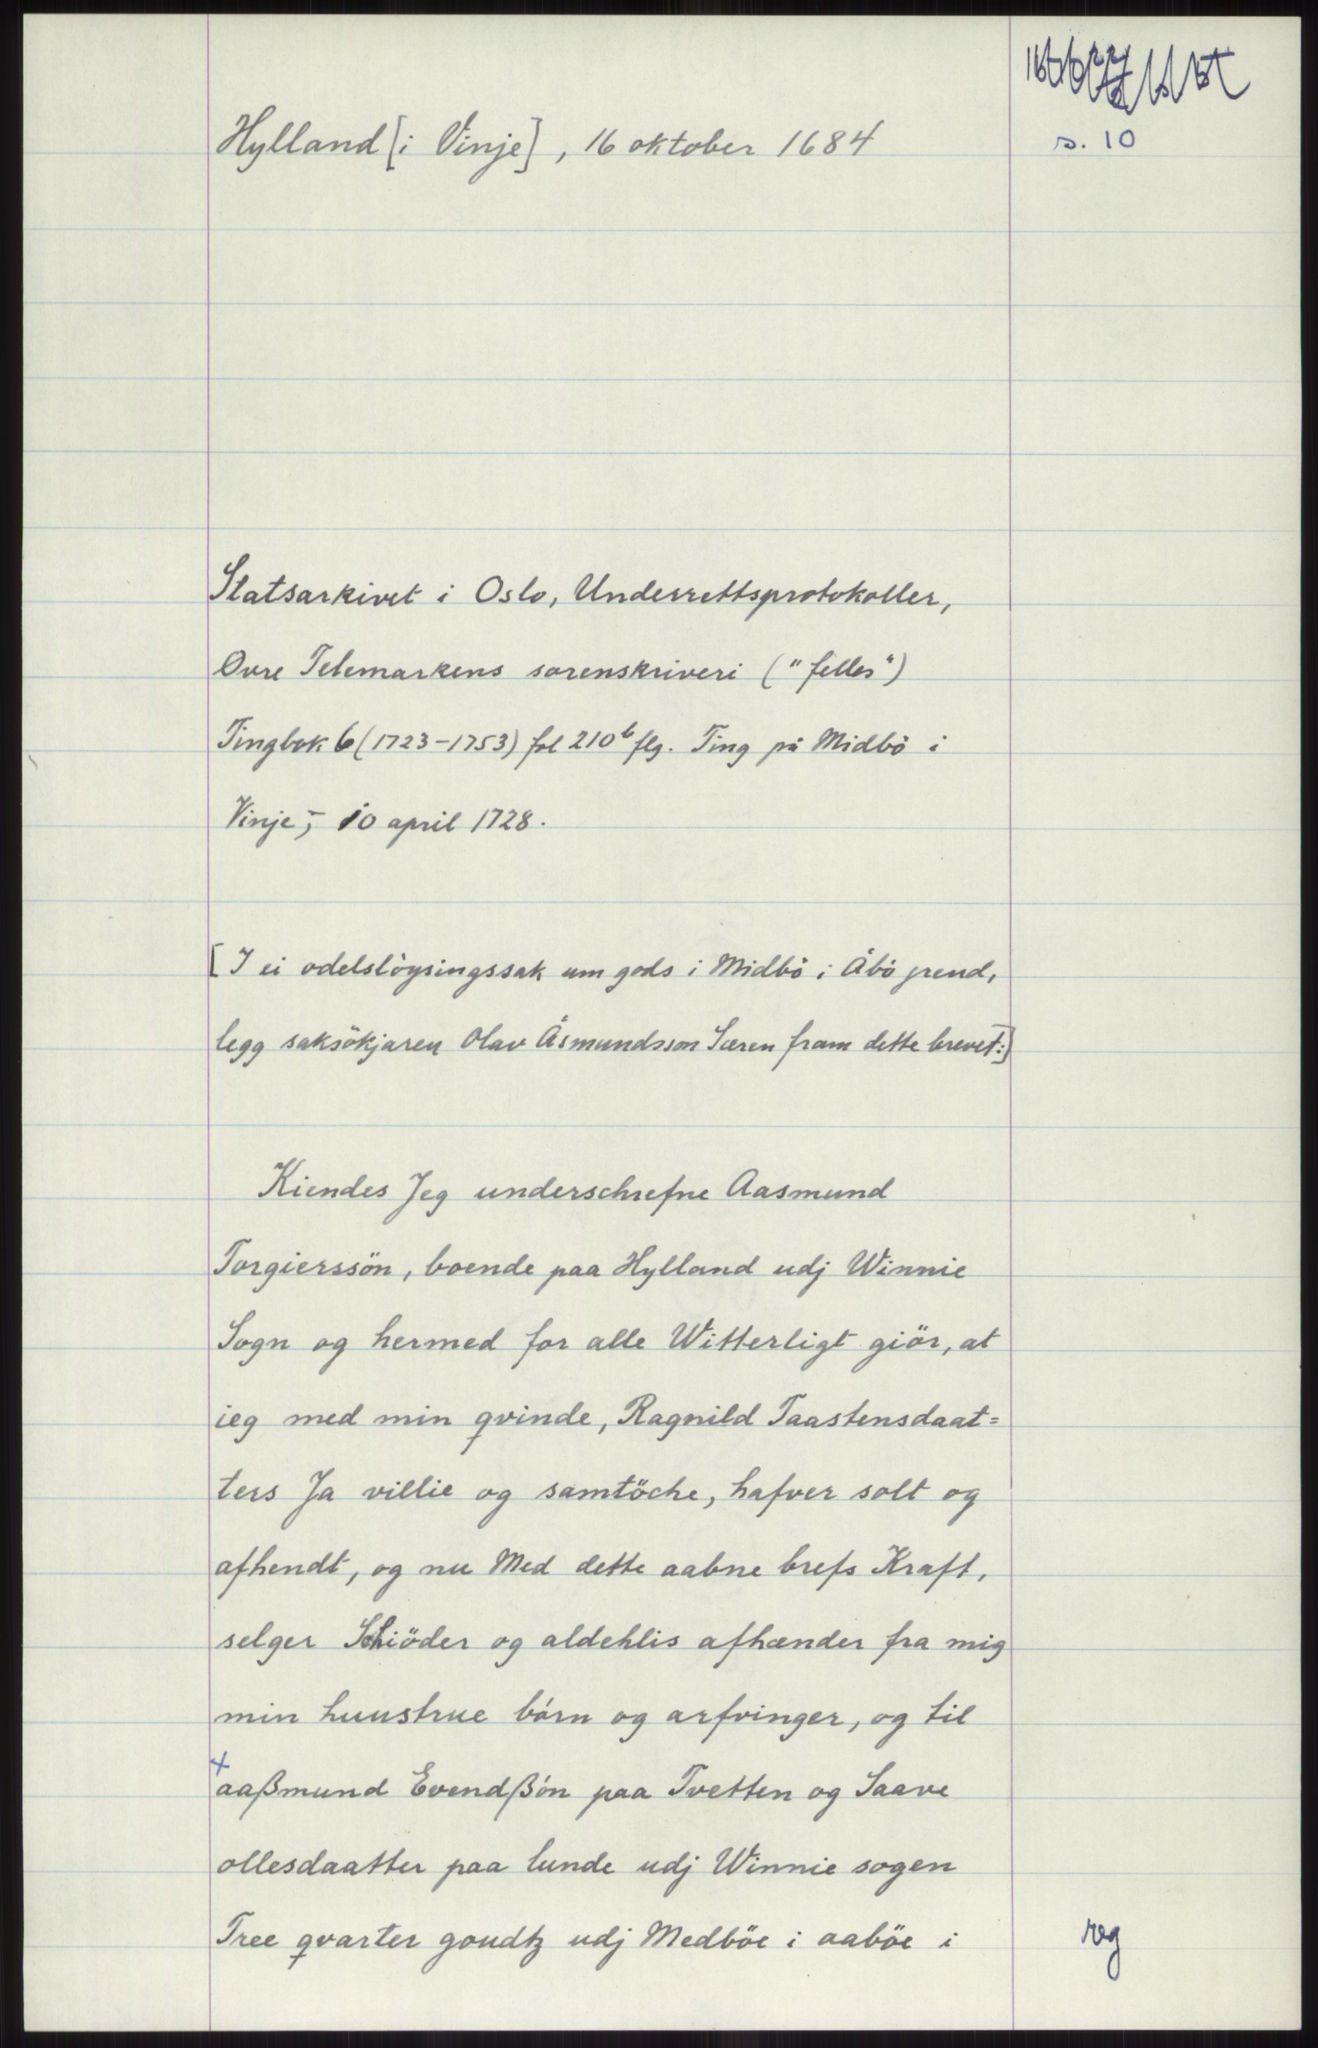 Hylland [i Vinje], 16 oktober 1684
s. 10
Statsarkivet i Oslo, Underrettsprotokoller,
Øvre Telemarkens sorenskriveri ("felles")
Tingbok 6 (1723-1753) fol 210b flg. Ting på Midbö i
Vinje, 10 april 1728.
[I ei odelslöysingssak um gods i Midbö i Åbö grend,
legg saksökjaren Olav Åsmundsson Særen fram dette brevet:]
Kiendes Jeg underschrefne Aasmund
Torgierssön, boende paa Hylland udj Winnie
Sogn og hermed for alle Witterligt giör, at
ieg med min qvinde, Ragnild Taastensdaat=
ters Ja villie og samtöche, hafver solt og
afhendt, og nu Med dette aabne brefs Kraft,
selger Schiöder og aldehlis afhænder fra mig
min huustrue börn og arfvinger, og til
aaßmund Evendßön paa Tvetten og Saave
ollesdaatter paa lunde udj Winnie sogen
Tree qvarter goudtz udj Medböe i aaböe i
reg